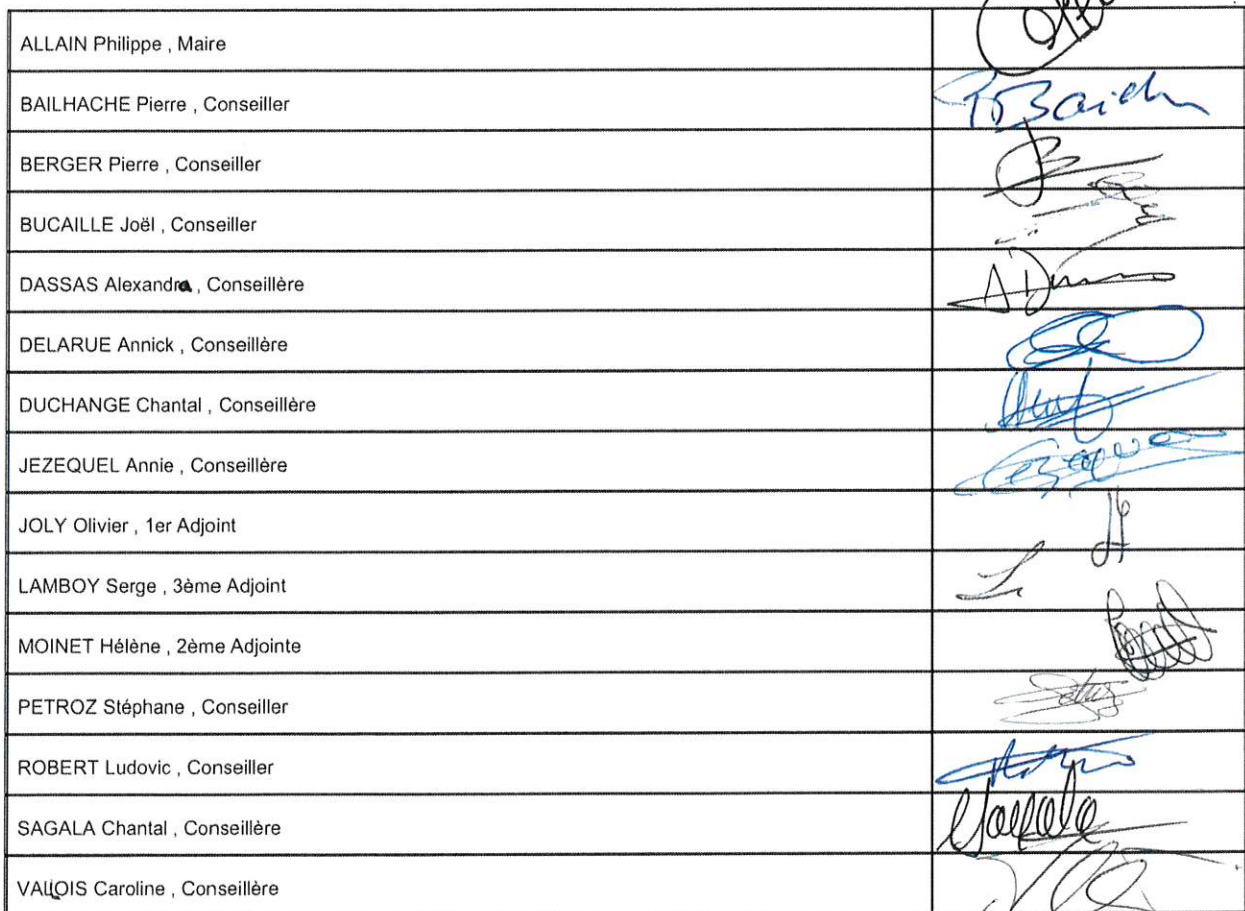 ALLAIN Philippe , Maire
BAILHACHE Pierre , Conseiller
BERGER Pierre , Conseiller
BUCAILLE Joël , Conseiller
DASSAS Alexandra , Conseillère
DELARUE Annick , Conseillère
DUCHANGE Chantal , Conseillère
JEZEQUEL Annie , Conseillère
JOLY Olivier , 1er Adjoint
LAMBOY Serge , 3ème Adjoint
MOINET Hélène , 2ème Adjointe
PETROZ Stéphane , Conseiller
ROBERT Ludovic , Conseiller
SAGALA Chantal , Conseillère
VALLOIS Caroline , Conseillère